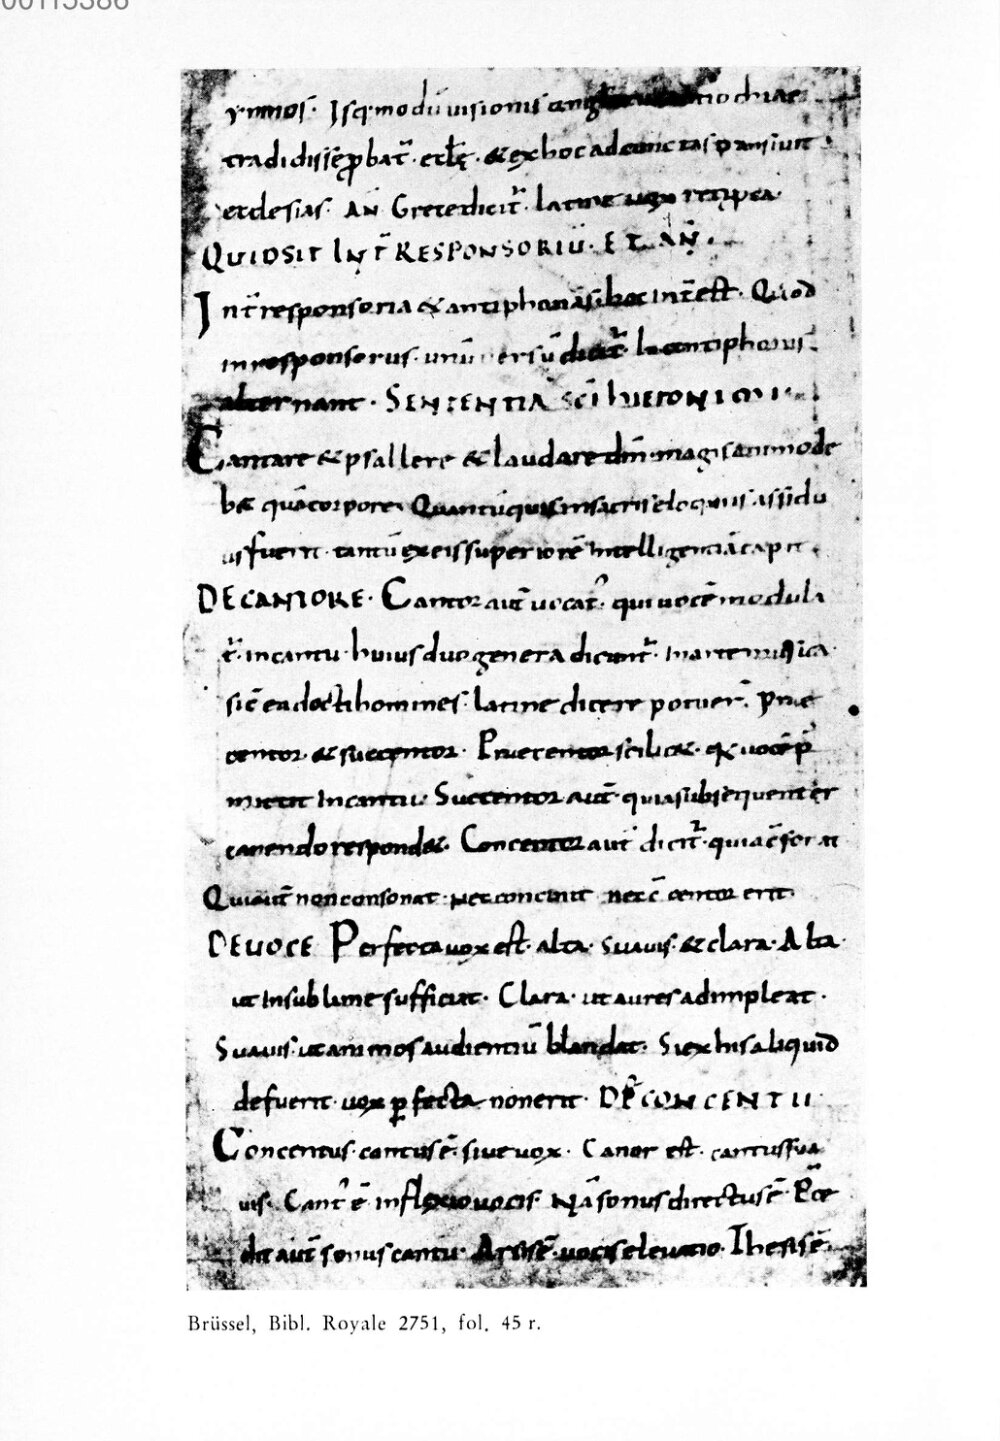 00115386
ymnos. Isq. modū visionis
tradidisse ꝓbat̄. eccłę. & ex hoc ad cunctas transivit
ecclesias. AN Grece dicit̄. latine vox reciproca.
QUID SIT INT̄ RESPONSORIŪ. ET AÑ.
Int̄ responsoria & antiphonas hoc int̄ est. Quod
in responsorus. unū versū dicit̄. In antiphonis
alternant. SENTENTIA SCI hIERONIMI.
Cantare & psallere & laudare dm̄ magis animo de
b& quā corpore. Quantū quis in sacris eloquiis assidu
us fuerit. tantū ex eis superiorē intelligentiā capit.
DE CANTORE. Cantor aut̄ vocat̄. qui vocē modula
t̄. in cantu. huius duo genera dicunt̄. In arte musica
sic̄ ea docti homines. latine dicere potuer̄. Prae
centor. & succentor. Praecentor scilic&. q̄ vocē p̄
mittit In cantu. Succentor aut̄. quia subsequenter
canendo respond&. Concentor aut̄ dicit̄. quia cōsonat
Qui aut̄ non consonat. nec concinit nec c̄ centor erit.
DE VOCE Perfecta vox est. alta. suavis. & clara. Alta
ut In sublime sufficiat. Clara. ut aures adimpleat.
Suavis. ut animos audientiū blandat. Si ex his aliquid
defuerit. vox ꝑfecta non erit. DE CONCENTU
Concentus. cantus ē. sive vox. Canor est. cantus sua
vis. Cant̄ ē inflexio vocis. Nā sonus directus ē. P̄ce
dit aut̄ sonus cantu. Arsis ē. vocis elevatio. Thesis ē.
Brüssel, Bibl. Royale 2751, fol. 45 r.